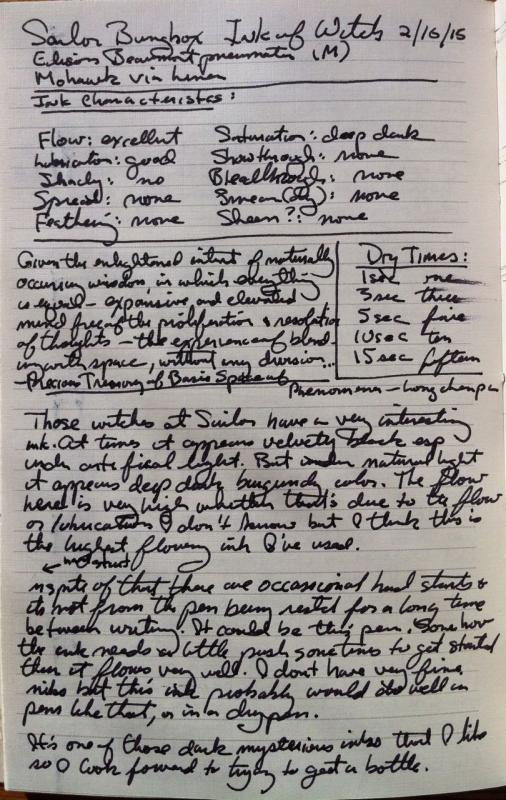 Sailor Bungbox Ink of Witch 2/15/15
Edison Beaumont pneumatic (M)
Mohawk via linen
Ink Characteristics:
Flow: excellent Saturation: deep dark
Lubrication: good Showthrough: none
Shady: no Bleedthrough: none
Spread: none Smear (dry): none
Feathering: none Sheen?: none
Given the enlightened intent of naturally
occuring wisdom, in which everything
is equal - expansive, and elevated
mind free of the proliferation & resolution
of thoughts - the experience of blend-
ing with space, without any division...
- Precious Treasury of Basic Space of
Phenomena - Longchenpa
Dry Times:
1 sec one
3 sec three
5 sec five
10 sec ten
15 sec fifteen
Those witches at Sailor have a very interesting
ink. At times it appears velvety black esp
under artifical light. But under natural light
it appears deep dark burgundy color. The flow
here is very high whether that's due to the flow
or lubrication I don't know but I think this is
the highest flowing ink I've used.
inspite of that there are occassional hard starts &
its not from the pen being rested for a long time
between writing. It could be this pen. Somehow
the ink needs a little push sometimes to get started
then it flows very well. I don't have very fine
nibs but this ink probably would do well in
pens like that, or in a dry pen.
It's one of those dark mysterious inks that I like
so I look forward to trying to get a bottle.